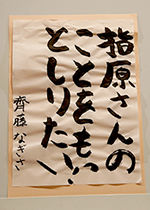 指原さんの
ことをもっと
としりたい
齊藤なぎさ